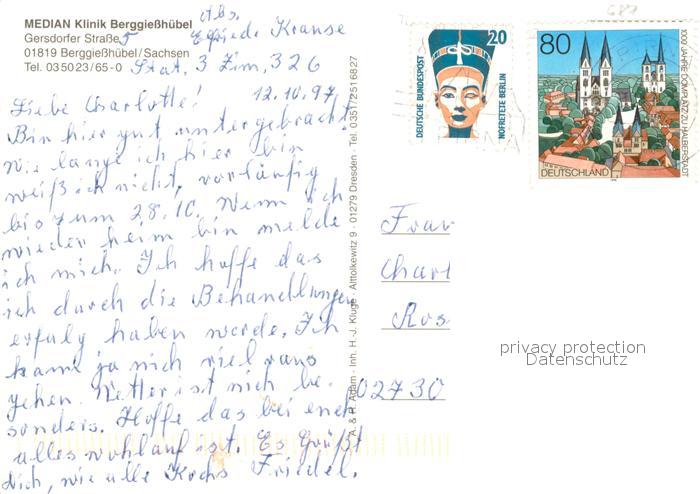 MEDIAN Klinik Berggießhübel
Gersdorfer Straße 5
01819 Berggießhübel/Sachsen
Tel. 035023/65-0
Abs.
Elfriede Krause
Stat. 3 Zim, 326
12.10.97
Liebe Charlotte!
Bin hier gut untergebracht.
Wie lange ich hier bin
weiß ich nicht, vorläufig
bis zum 28.10. Wenn ich
wieder heim bin melde
ich mich. Ich hoffe das
ich durch die Behandlungen
erfolg haben werde. Ich
kann ja nich viel raus
gehen. Wetter ist nich be-
sonders. Hoffe das bei euch
alles wohlauf ist. Es Grüßt
Dich, wie alle Friedel.
A. & R. Adam · Inh. H.-J. Kluge · Alttolkewitz 9 · 01279 Dresden · Tel. 0351/2516827
20
DEUTSCHE BUNDESPOST
NOFRETETE BERLIN
80
1000 JAHRE DOMPLATZ ZU HALBERSTADT
DEUTSCHLAND
Frau
Charl
Ros
02730
privacy protection
Datenschutz